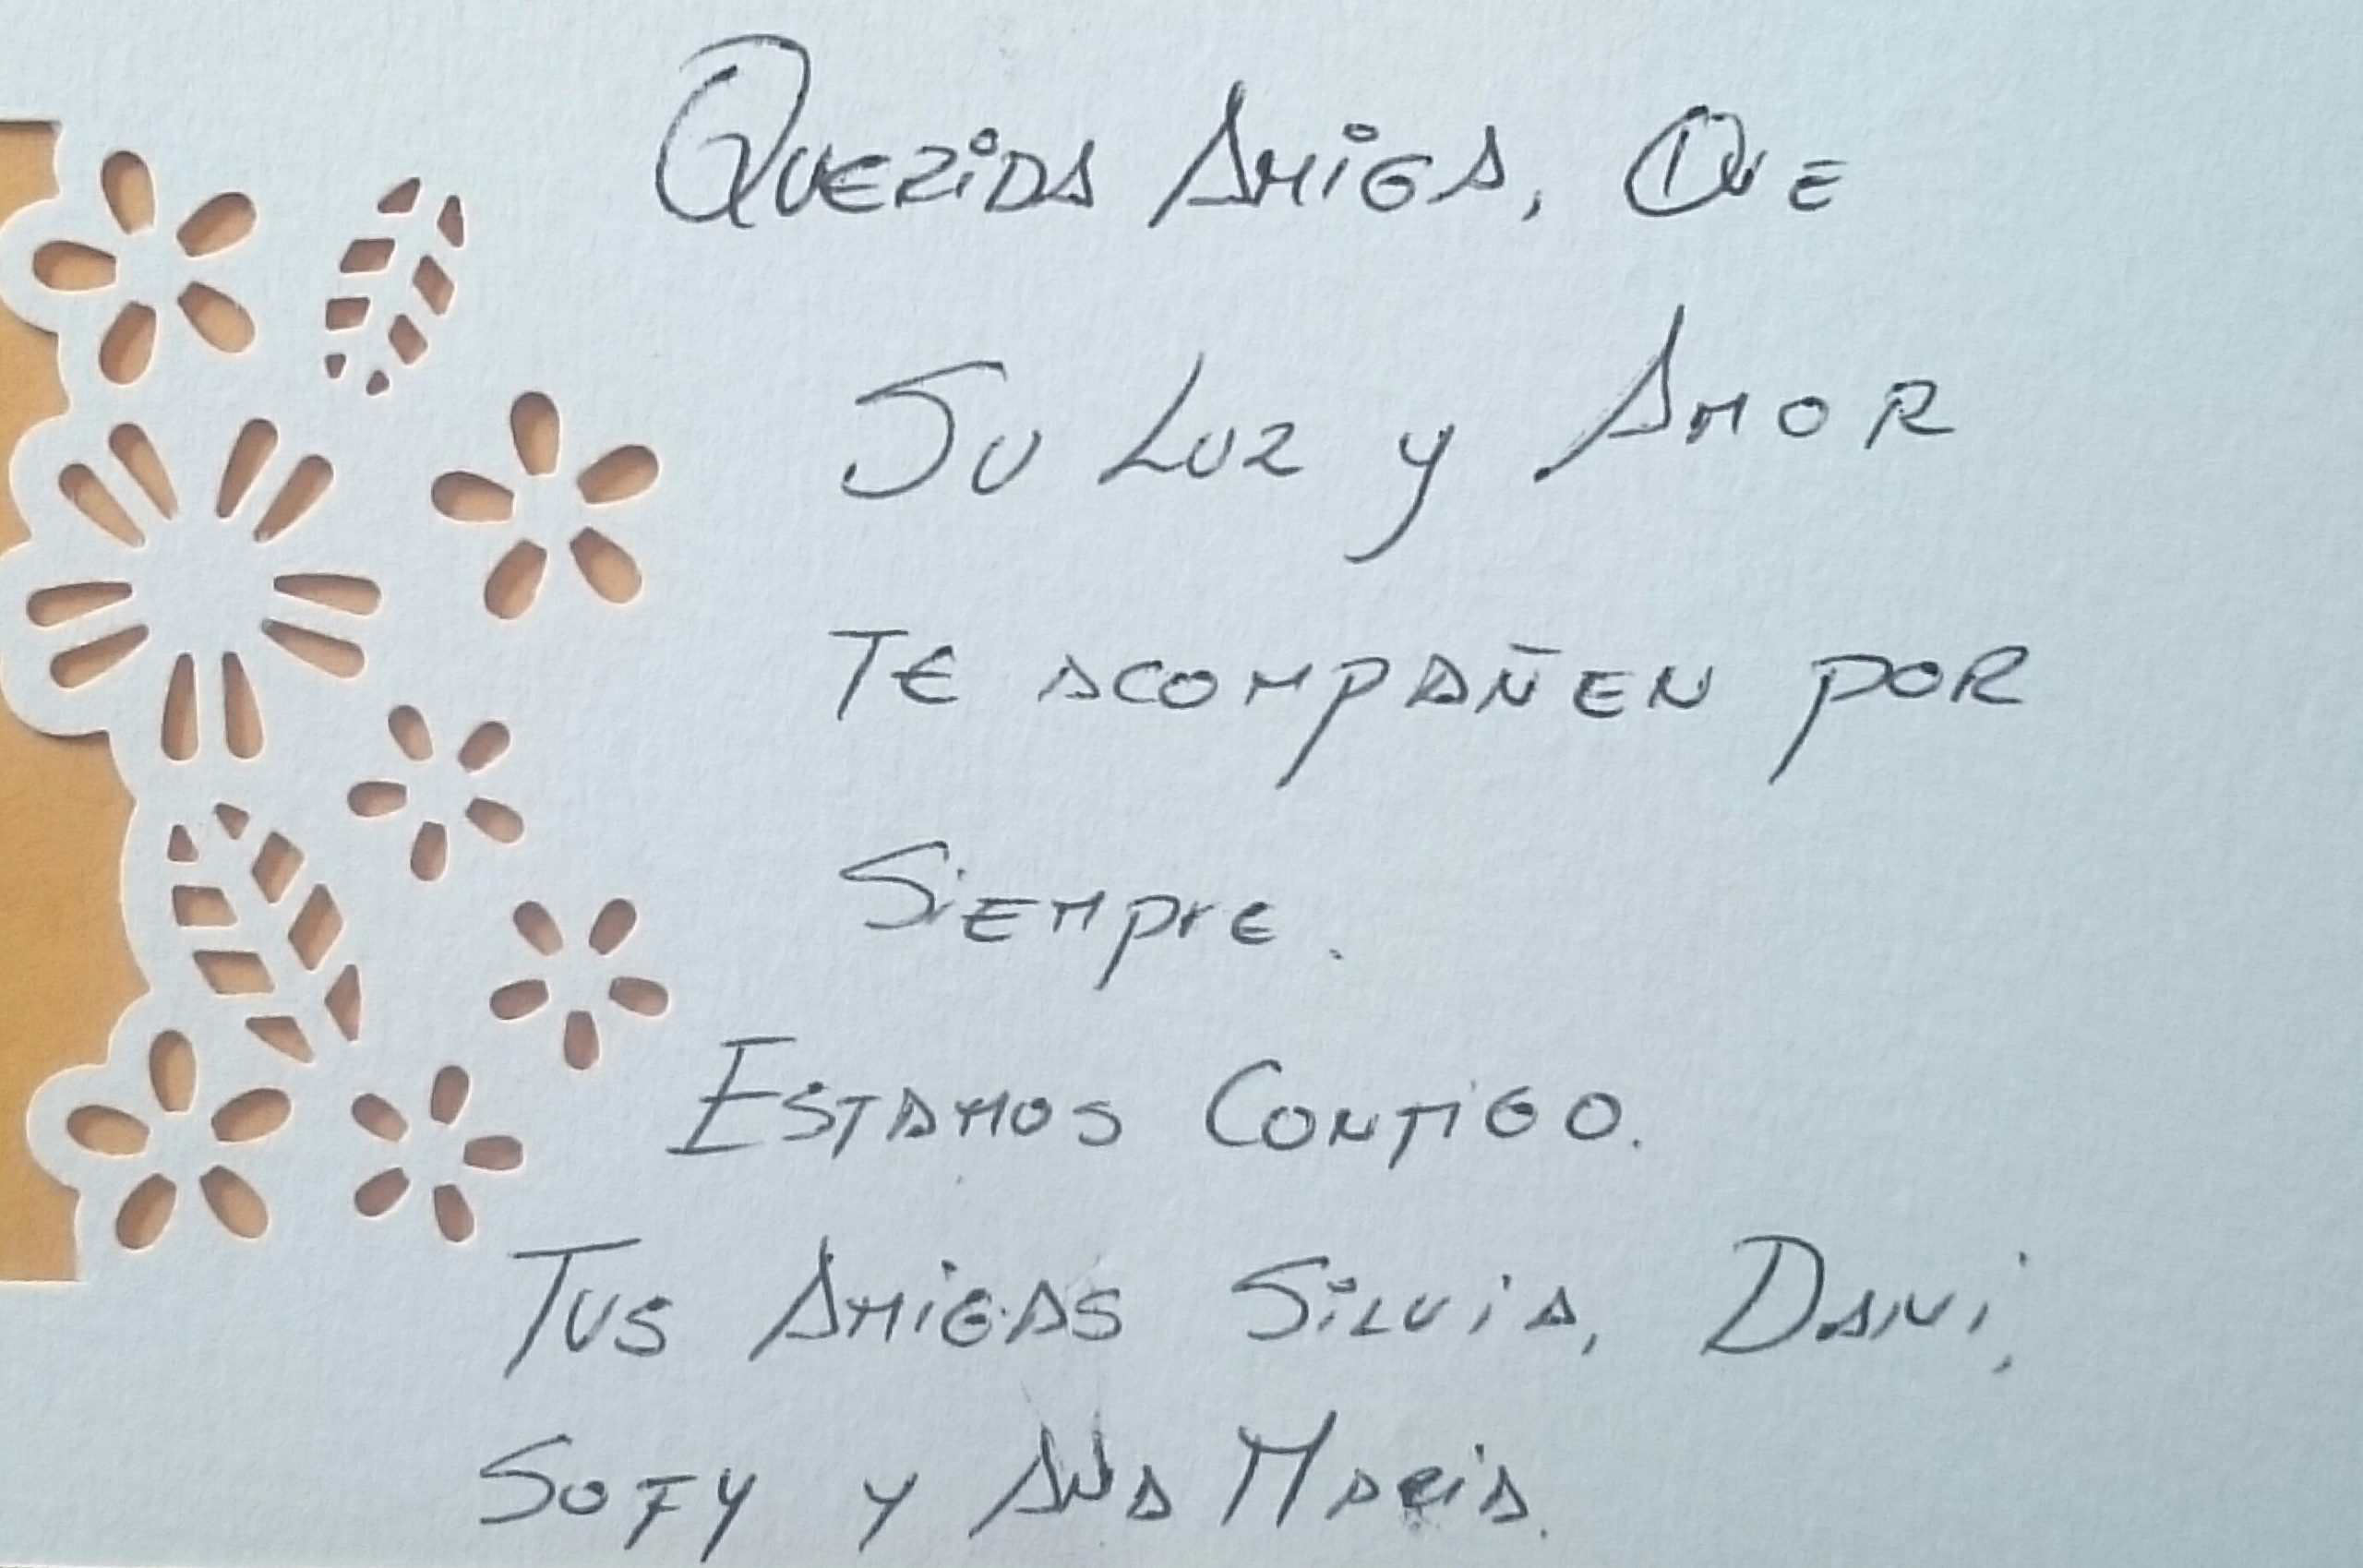 Querida Amiga, Que
Su Luz y Amor
Te acompañen por
Siempre.
Estamos Contigo.
Tus Amigas Silvia, Dani,
Sofy y Ana Maria.